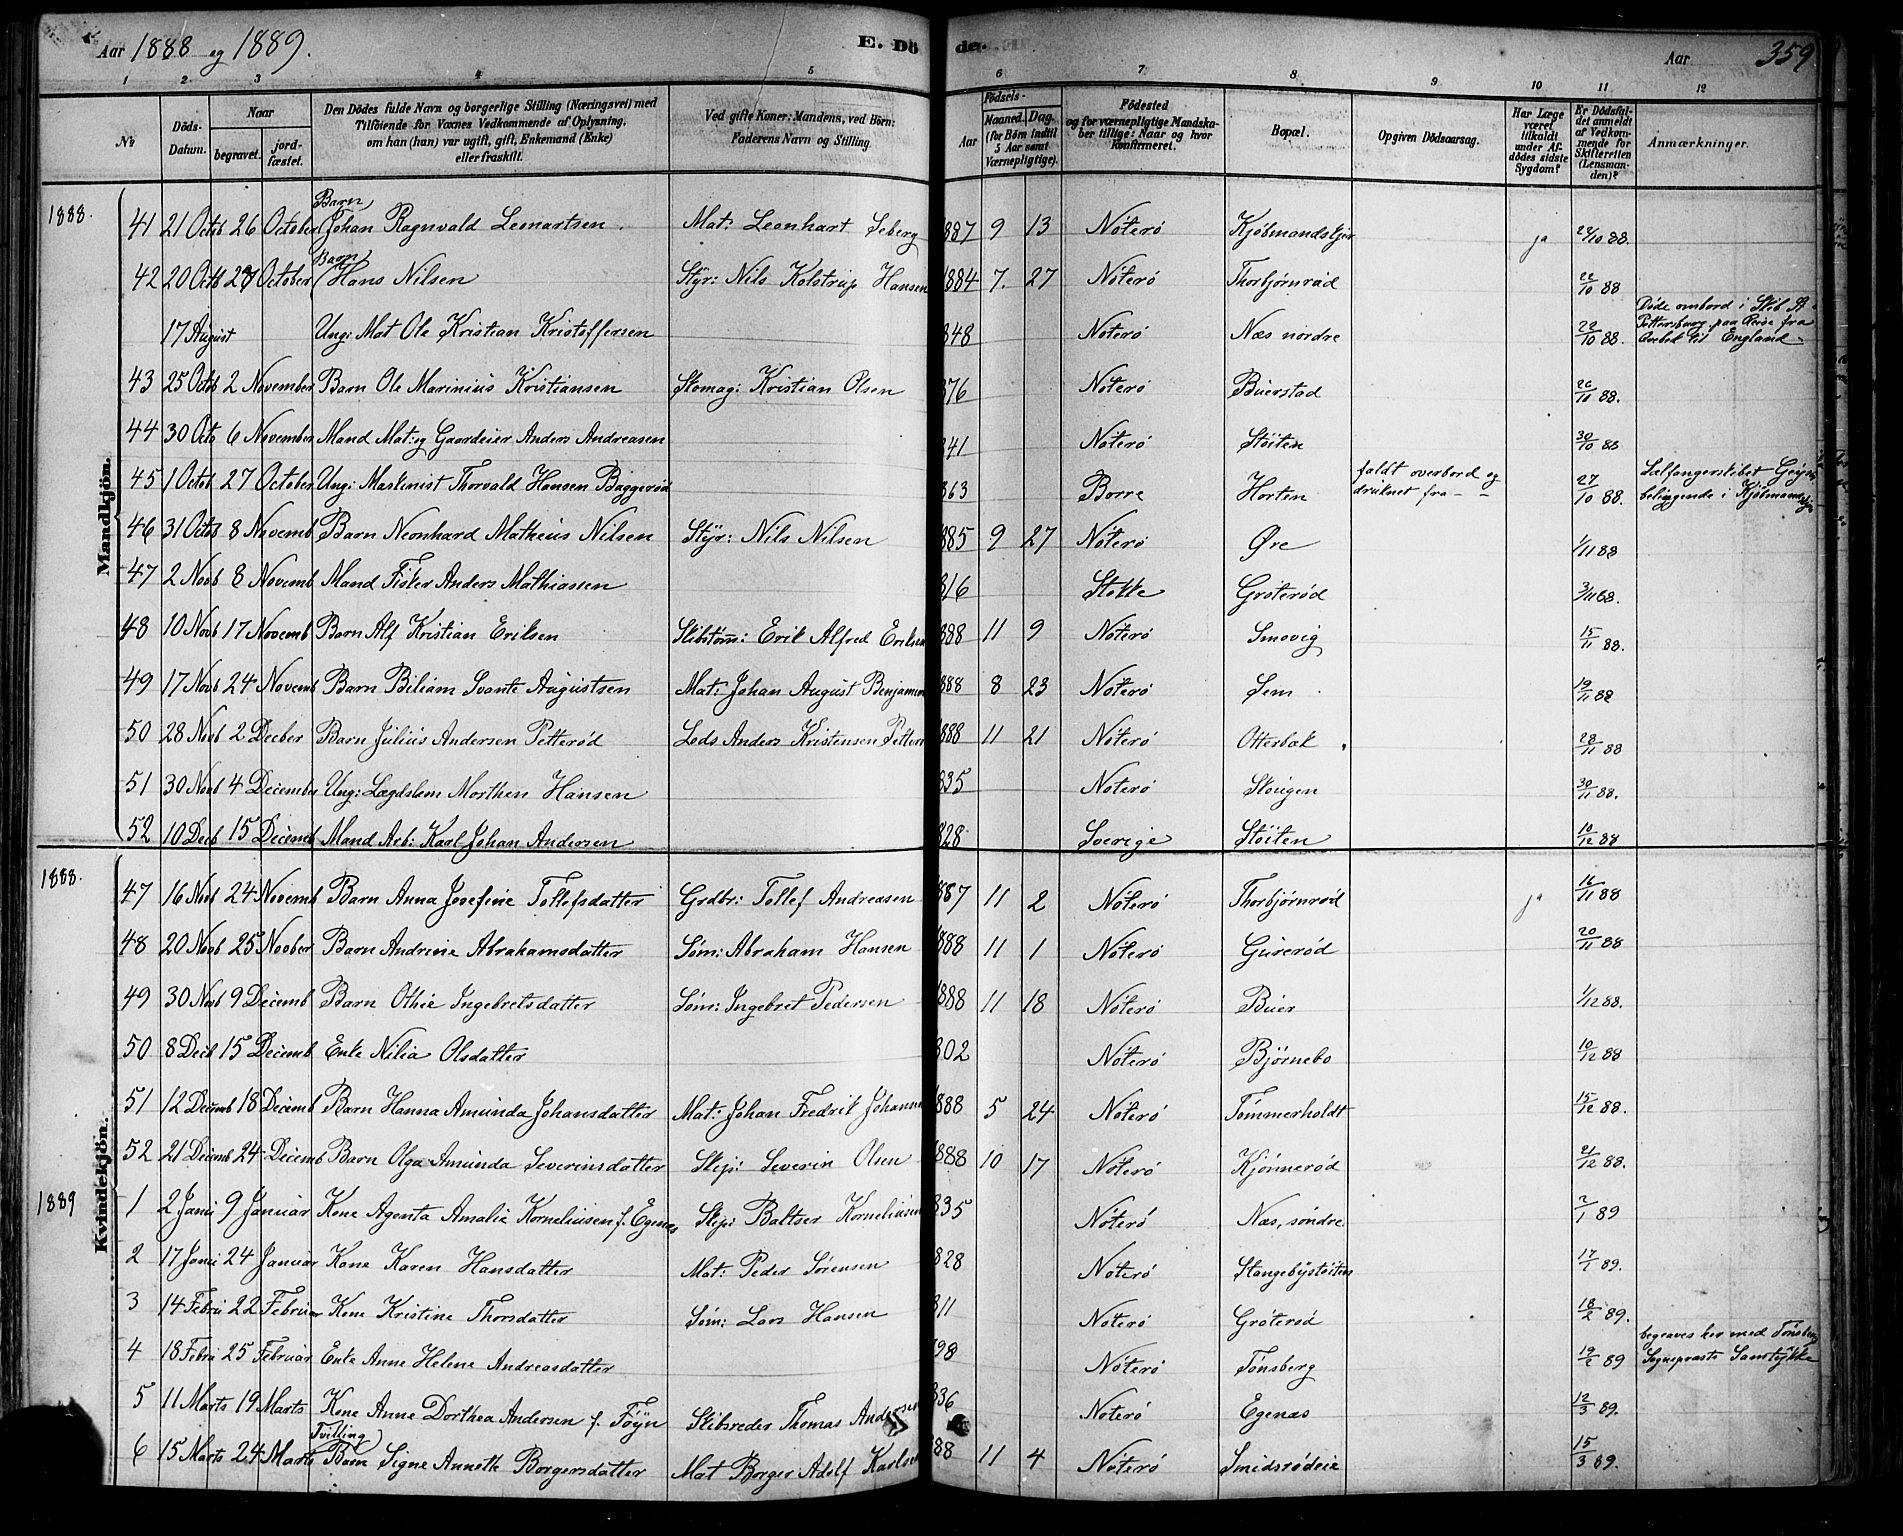 Aar 1888 og 1889. E. Dö de. Aar 359
1 2 3 4 5 6 7 8 9 10 11 12
№ Döds-Datum. Naar begravet. jordfæstet. Den Dödes fulde Navn og borgerlige Stilling (Næringsvei) med Tilföiende for Voxnes Vedkommende af Oplysning, om han (hun) var ugift, gift, Enkemand (Enke) eller fraskilt. Ved gifte Koner: Mandens, ved Börn: Faderens Navn og Stilling Födsels- Aar Maaned. Dag. (for Börn indtil 5 Aar samt Værnepligtige). Födested og for værnepligtige Mandskaber tillige: Naar og hvor konfirmeret. Bopæl. Opgiven Dödsaarsag. Har Læge været tilkaldt under Afdödes sidste Sygdom? Er Dödsfaldet anmeldt af Vedkommende for Skifteretten (Lensmanden)? Anmærkninger.
Mandkjön.
1888. 41 21 Octob 26 October Barn Johan Ragnvald Leonartsen. Mat: Leonhart Seberg 887 9 13 Nöterö Kjöbmandskjær ja 24/10 88.
42 20 Octb 27 October Barn Hans Nilsen Styr: Nils Kolstrup Hansen 1884 7. 27 Nöterö Thorbjørnrød 22/10 88
17 August Ung: Mat Ole Kristian Kristoffersen 848 Nöterö Næs nordre 22/10 88. Döde ombord i Skib
Pettersburg paa Reise fra
til England
43 25 Octob 2 November Barn Ole Marinius Kristiansen Skomag: Kristian Olsen 876 Nöterö Buerstad 26/10 88.
44 30 Octo 6 November Mand Mat: og Gaardeier Anders Andreasen 841 Nöterö Støiten 30/10 88
45 1 Octob 27 October Ung: Maskinist Thorvald Hansen Baggerød 863 Borre Horten faldt overbord og
druknet fra 27/10 88. Sælfangerskibet
beliggende i
46 31 Octob 8 Novemb Barn Neonhard Matheus Nilsen Styr: Nils Nilsen 885 9 27 Nöterö Øre 1/11 88
47 2 Novb 8 Novemb Mand Fisker Anders Mathiassen 816 Stokke Grøterød 3/11 88.
48 10 Novb 17 Novemb Barn Alf Kristian Eriksen Skibstøm: Erik Alfred Eriksen 888 11 9 Nöterö Smovig 15/11 88.
49 17 Novb 24 Novemb Barn Biliam Svante Augustsen Mat: Johan August Benjamin 888 8 23 Nöterö Sem. 19/11 88
50 28 Novb 2 Decber Barn Julius Andersen Petterød Lods Anders Kristensen Petterø 888 11 21 Nöterö Otterbæk. 28/11 88
51 30 Novb 4 December Ung: Lægdslem Morthen Hansen 835 Nöterö Skougen 30/11 88.
52 10 Decb 15 Decemb Mand Arb: Karl Johan Andersen 828 Sverige Støiten 10/12 88
Kvindekjön.
1888. 47 16 Novb 24 Novemb Barn Anna Josefine Tollefsdatter Grdbr: Tollef Andreasen 887 11 2 Nöterö Thorbjørnrød ja 16/11 88
48 20 Novb 25 Novber Barn Andrine Abrahamsdatter Søm: Abraham Hansen 888 11 1 Nöterö Gurerød 20/11 88
49 30 Novb 9 Decemb Barn Othie Ingebretsdatter Søm: Ingebret Pedersen 888 11 18 Nöterö Buer 1/12 88.
50 8 Decb 15 Decemb Enke Nilia Olsdatter 802 Nöterö Bjørnebo 10/12 88
51 12 Decemb 18 Decemb Barn Hanna Amunda Johansdatter Mat: Johan Fredrik Johann 888 5 24 Nöterö Tømmerholdt 15/12 88.
52 21 Decemb 24 Decemb Barn Olga Amunda Severinsdatter Skip: Severin Olsen 888 10 17 Nöterö Kjønnerød 21/12 88.
1889 1 2 Janu 9 Januar Kone Agenta Amalie Korneliusen f. Egenæs Skip: Baltser Korneliusen 835 Nöterö Næs, søndre 7/1 89
2 17 Janu 24 Januar Kone Karen Hansdatter Mat: Peder Sørensen 828 Nöterö Stangebystøiten 17/1 89.
3 14 Febru 22 Februar Kone Kristine Thorsdatter Søm: Lars Hansen 811 Nöterö Grøterød 18/2 89.
4 18 Febru 25 Februar Enke Anne Helene Andreasdatter 798 Nöterö Tønsberg 19/2 89 begraves her med Tønsberg
Sogneprests Samtykke
5 11 Marts 19 Marts Kone Anne Dorthea Andersen f. Föyn Skibsreder Thomas Andersen 836 Nöterö Egenæs 12/3 89.
6 15 Marts 24 Marts Tvilling Barn Signe Annette Borgersdatter Mat Borger Adolf Karlsen 888 11 4 Nöterö Smidsrødeie 15/3 89.